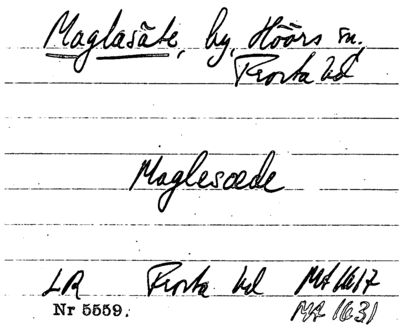 Maglasäte, by, Höörs sn,
Frosta hd
Maglesæde
LR Frosta hd MA 1617
Nr 5559. MA 1631